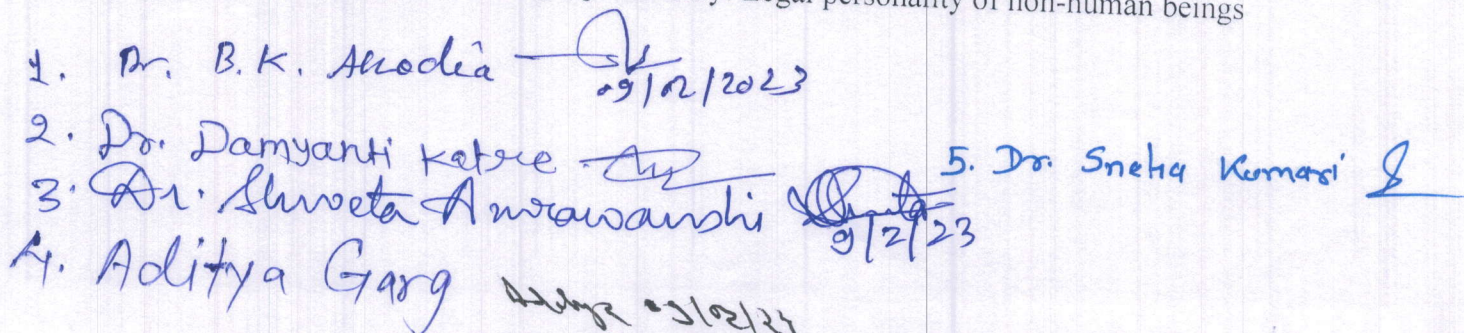 Legal personality of non-human beings
1. Dr. B.K. Akodia 09/02/2023
2. Dr. Damyanti Katre
3. Dr. Shweta 9/2/23
4. Aditya Garg
5. Dr. Sneha Kumari